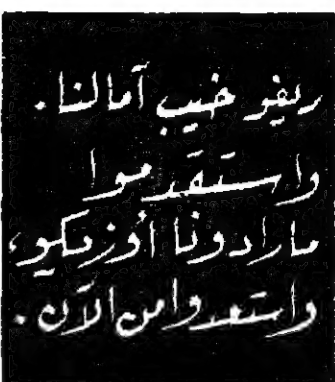 ريفو خيب آمالنا.
واستقدموا
مارادونا أوزيكو،
واستعدوا من الآن.